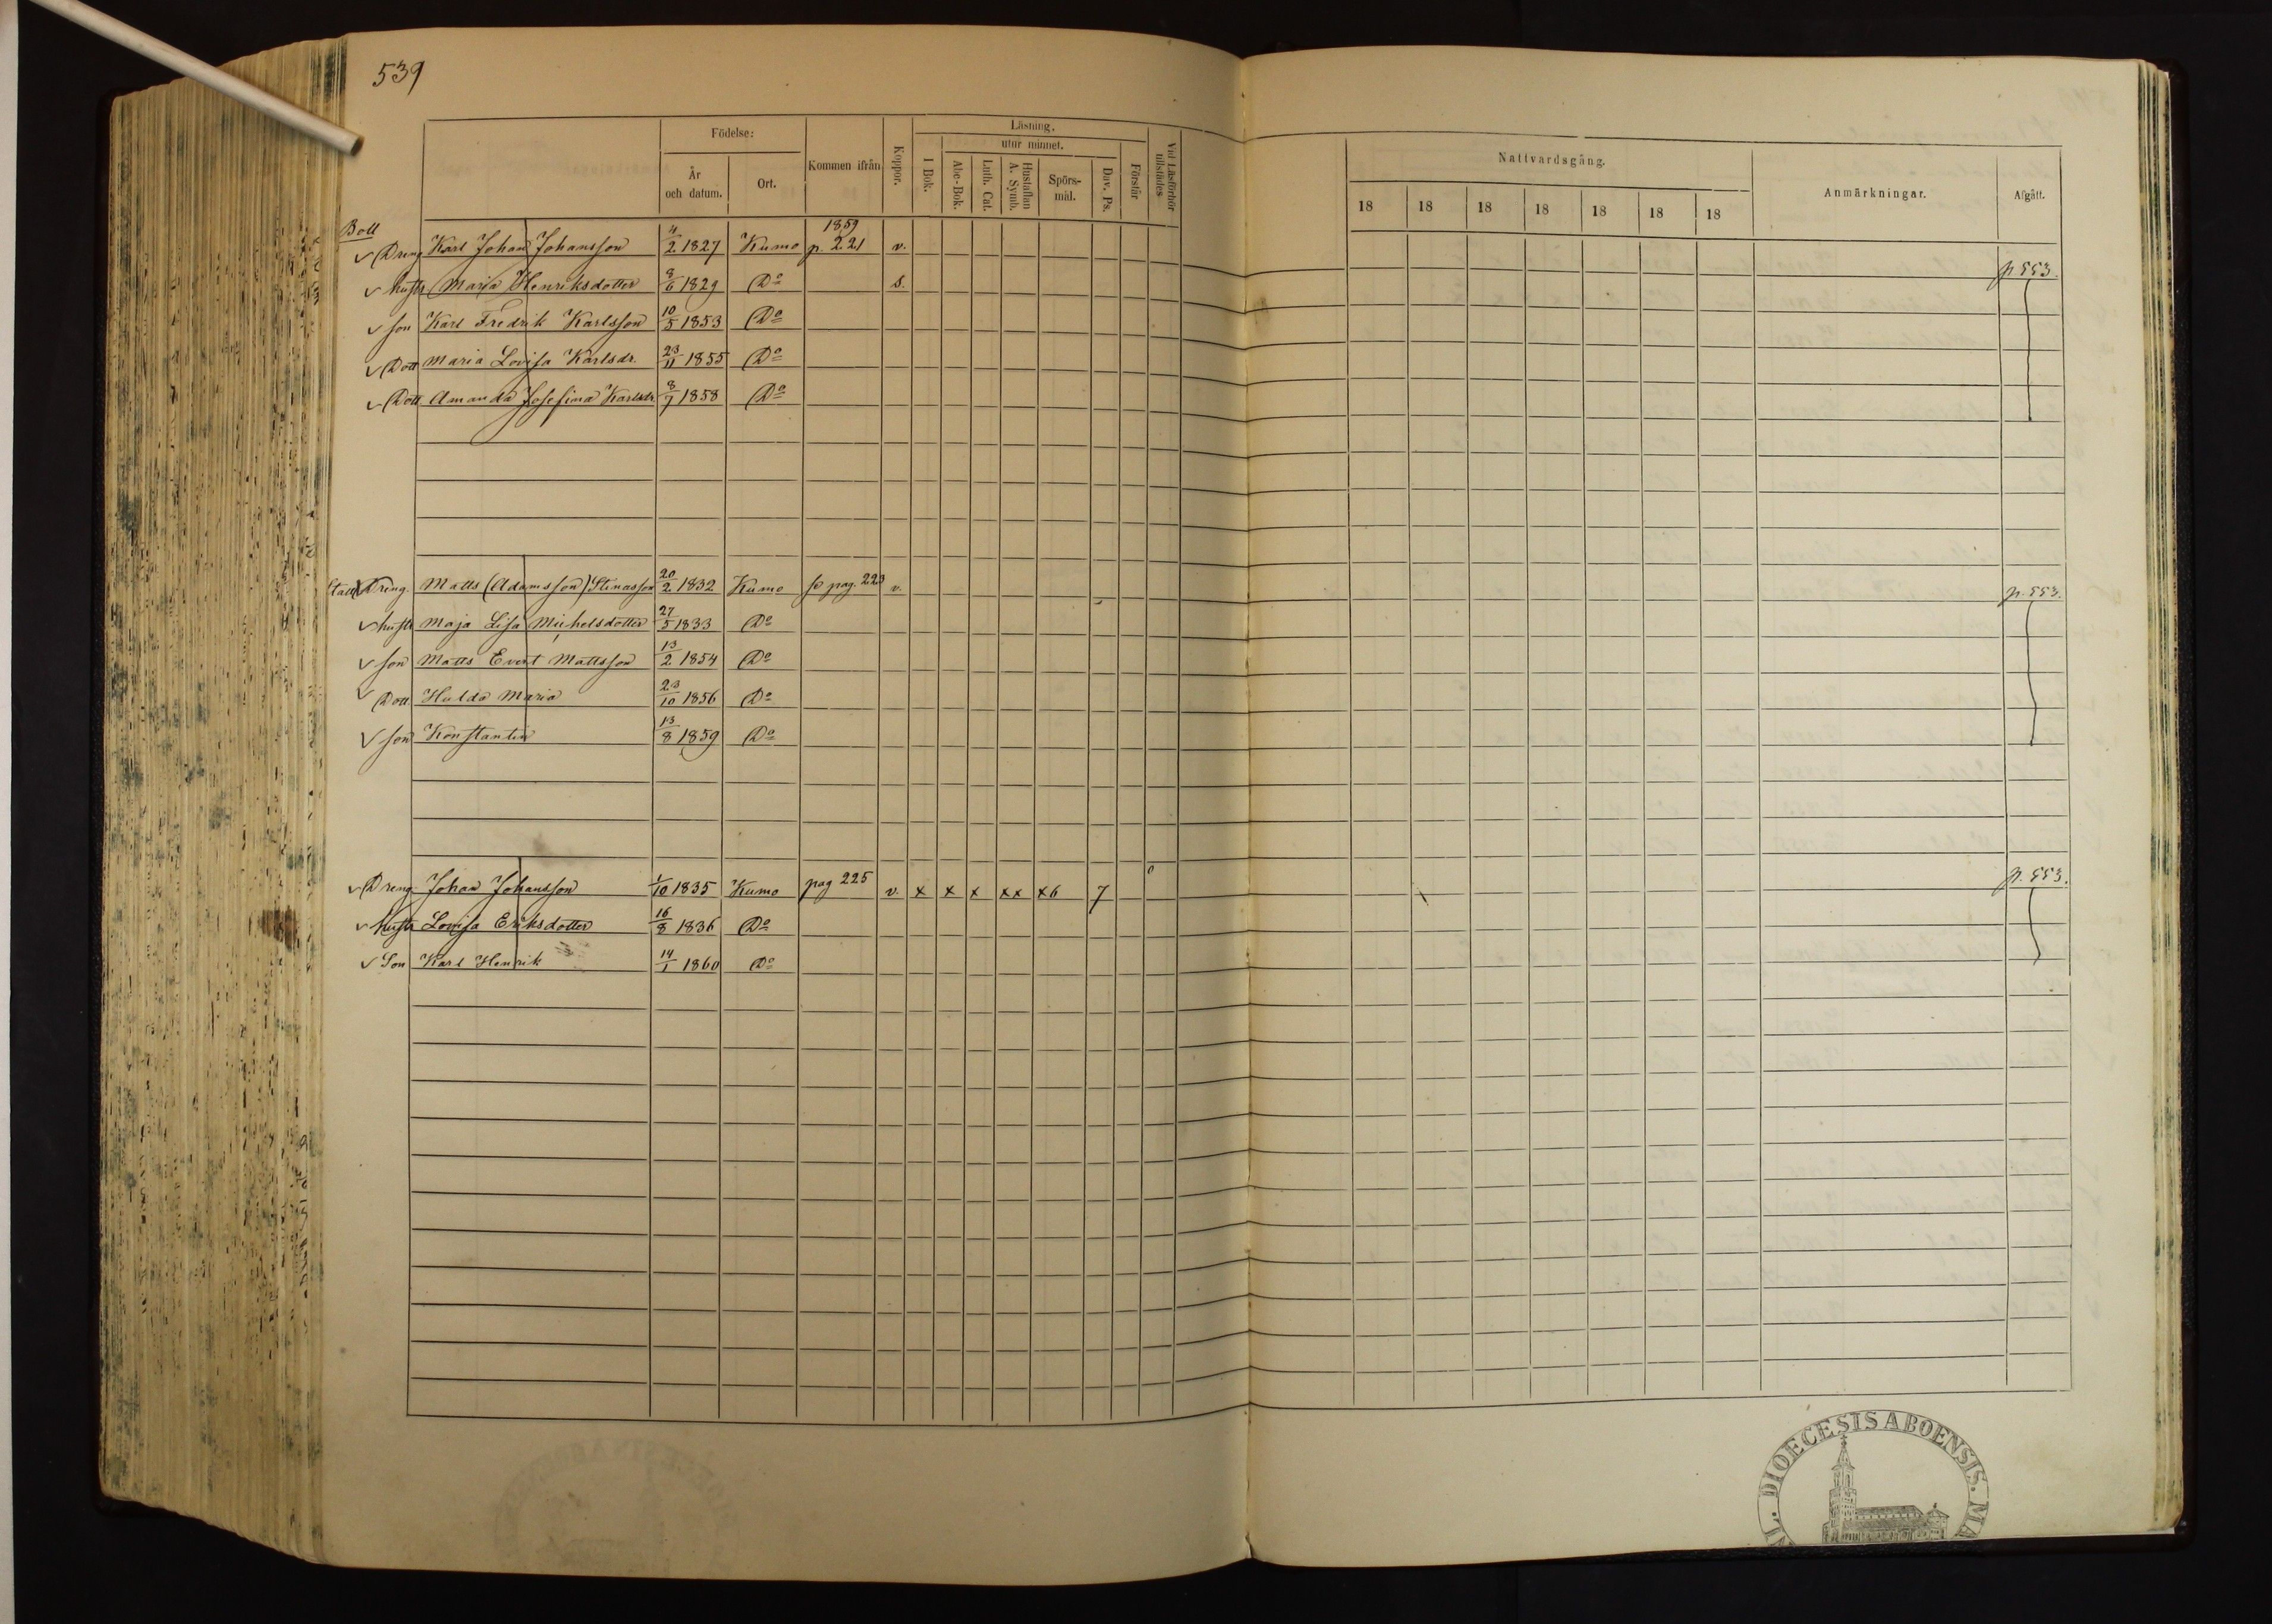 539
Födelse:
År och datum.
Ort.
Kommen ifrån
Koppor.
Läsning.
I Bok.
utur minnet.
Abc-Bok.
Luth. Cat.
Hustaflan A. Symb.
Spörsmål.
Dav. Ps.
Förstår
Vid Läsförhör tillstädes
Nattvardsgång.
18 18 18 18 18 18 18
Anmärkningar.
Afgått.
Boll
1859
Dreng Karl Johan Johansson 4/2 1827 Kumo p. 221 v. p 553.
hustr Maria Henriksdotter 8/6 1829 Do s.
son Karl Fredrik Karlsson 10/5 1853 Do
Dott Maria Lovisa Karlsdr. 23/11 1855 Do
Dott. Amanda Josefina Karlsdr. 8/7 1858 Do
Dreng. Matts (Adamsson) Stinasson 20/2 1832 Kumo se pag. 223 v. p. 553.
hustr Maja Lisa Michelsdotter 27/5 1833 Do
son Matts Evert Mattsson 13/2 1854 Do
Dott. Hulda Maria 23/10 1856 Do
son Konstantin 13/8 1859 Do
Dreng Johan Johansson 1/10 1835 Kumo pag 225 v. x x x xx x6 7 p. 553.
hustr Lovisa Eriksdotter 16/8 1836 Do
Son Karl Henrik 14/1 1860 Do
DIOECESIS ABOENSIS. MA